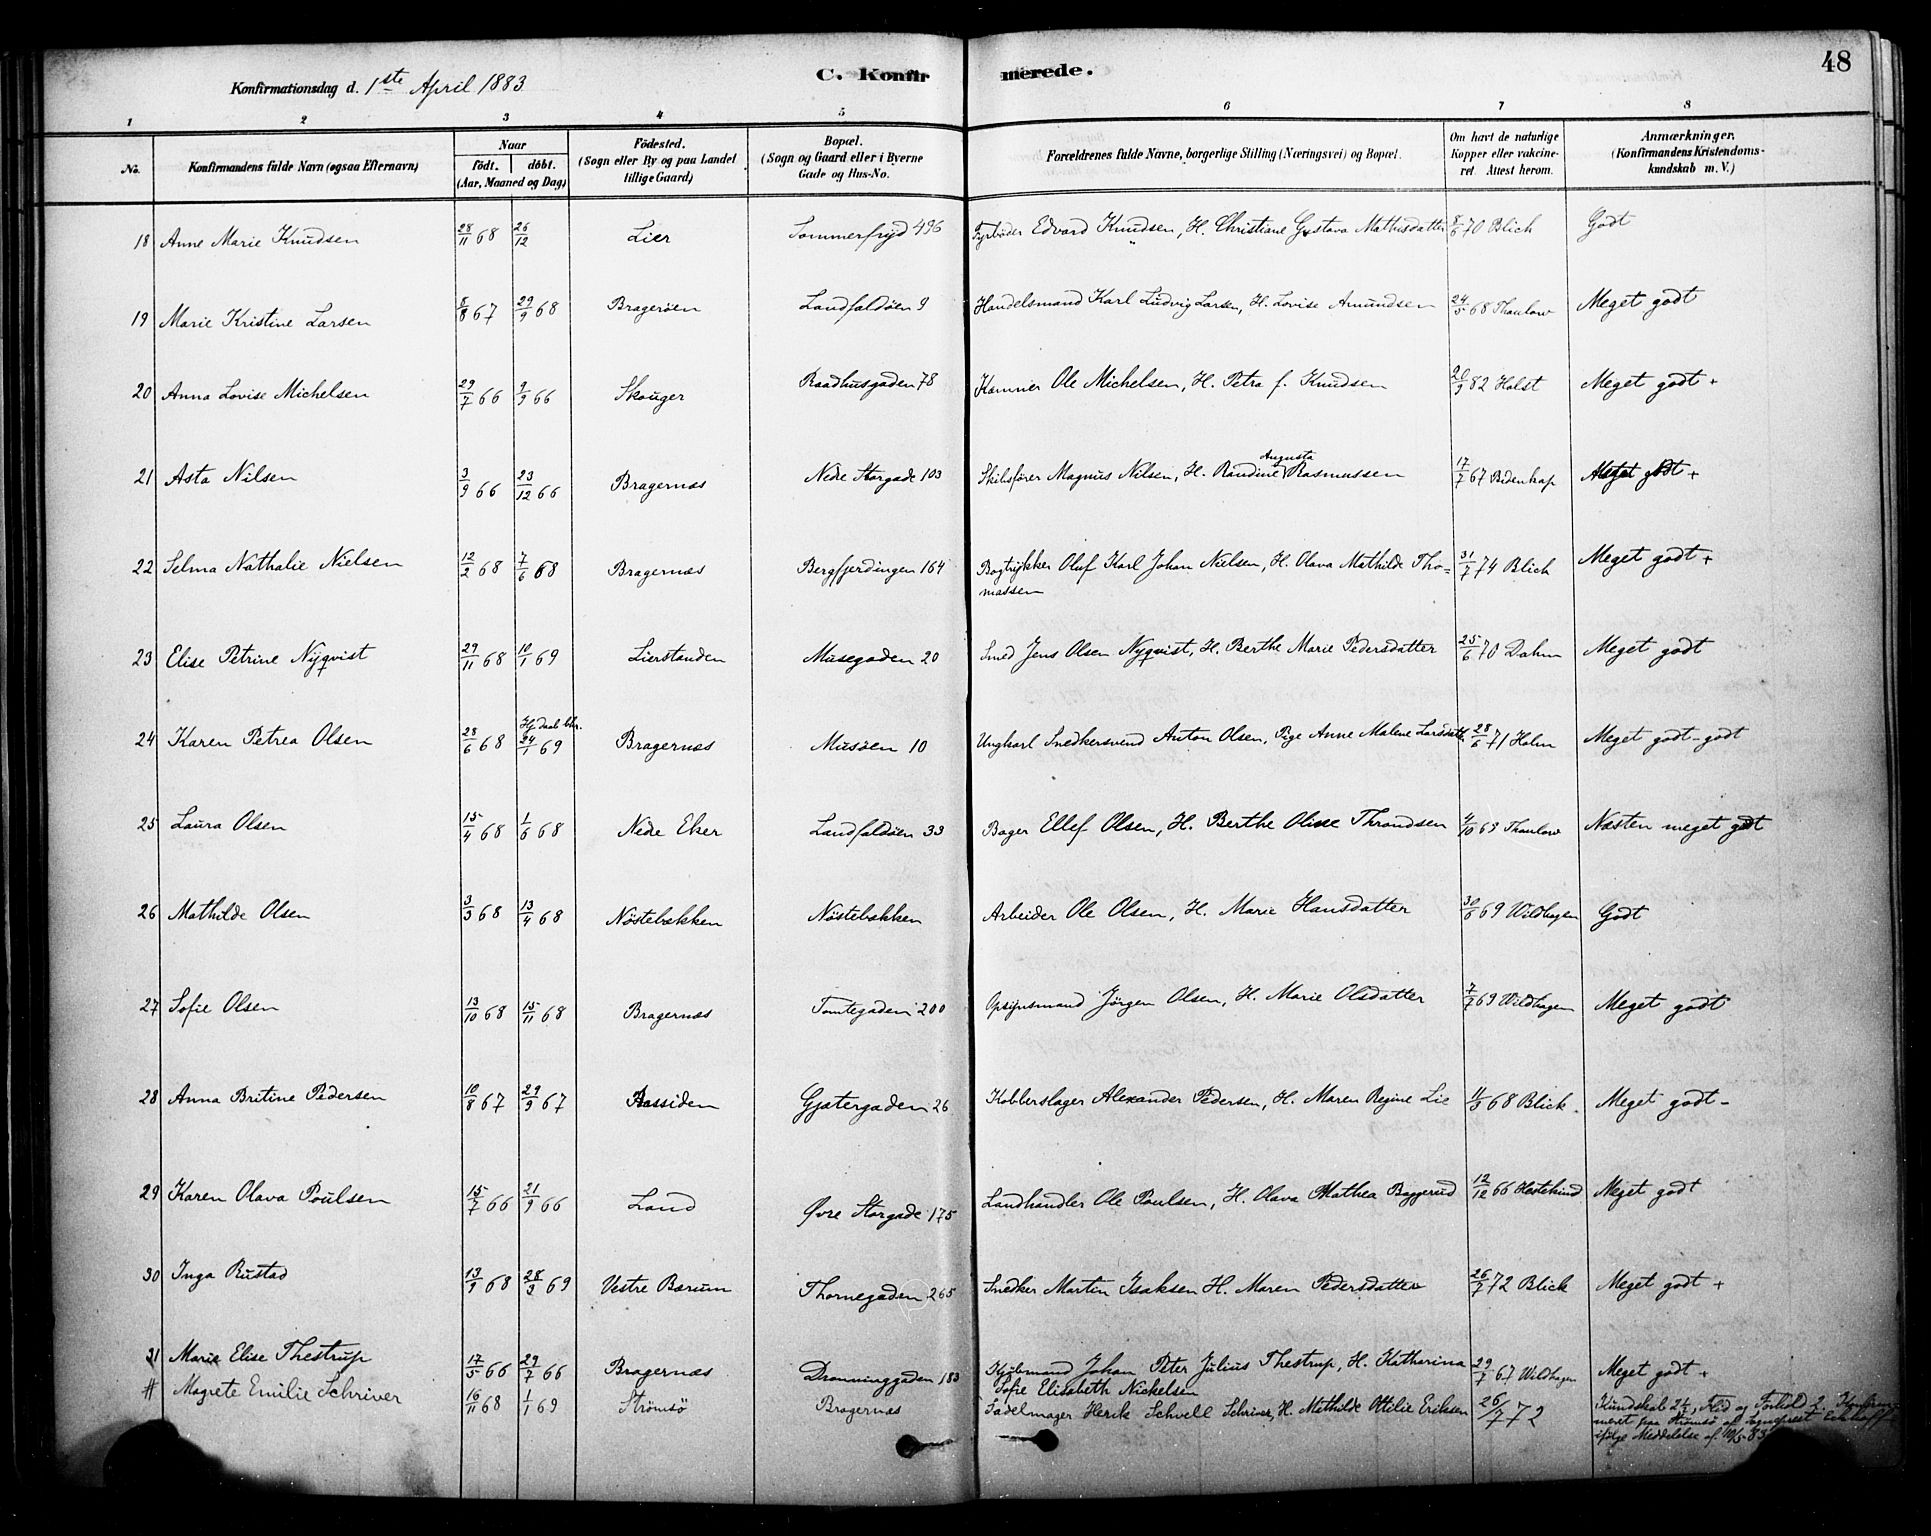 48
Konfirmationsdag d. 1ste April 1883
C. Konfirmerede.
1 2 3 4 5 6 7 8
No. Konfirmandens fulde Navn (ogsaa Efternavn) Naar födt. döbt. (Aar, Maaned og Dag) Födested. (Sogn eller By og paa Landet tillige Gaard) Bopæl. (Sogn og Gaard eller i Byerne Gade og Hus-No. Forældrenes fulde Navne, borgerlige Stilling (Næringsvei) og Bopæl. Om havt de naturlige Kopper eller vakcineret. Attest herom. Anmærkninger. (Konfirmandens Kristendomskundskab m. V.)
18 Anne Marie Knudsen 28/11 68 26/12 Lier Sommerfryd 496 Fyrbøder Edvard Knudsen, H. Christiane Gustava Mathisdatter 8/6 70 Blich Godt
19 Marie Kristine Larsen 8/8 67 29/9 68 Bragerøen Landfaldöen 9 Handelsmand Karl Ludvig Larsen, H. Lovise Amundsen 24/5 68 Thaulow Meget godt
20 Anna Lovise Michelsen 29/7 66 9/9 66 Skouger Raadhusgaden 78 Ole Michelsen, H. Petra f. Knudsen 20/9 82 Holst Meget godt +
21 Asta Nilsen 3/9 66 23/12 66 Bragernæs Nedre Storgade 103 Skibsfører Magnus Nilsen, H. Randine Augusta Rasmussen 17/7 67 Bidenkap Meget godt +
22 Selma Nathalie Nielsen 12/2 68 7/6 68 Bragernæs Bergfjerdingen 164 Bogtrykker Oluf Karl Johan Nielsen, H. Olava Mathilde Tho=
massen 31/7 74 Blich Meget godt +
23 Elise Petrine Nyqvist 29/11 68 10/1 69 Lierstanden Musegaden 20 Smed Jens Olsen Nyqvist, H. Berthe Marie Pedersdatter 25/6 70 Dahm Meget godt
24 Karen Petrea Olsen 28/6 68 Hjdaab bkr. 24/1 69 Bragernæs Musöen 10 Ungkarl Snedkersvend Anton Olsen, Pige Anne Malene Larsdatt. 28/6 71 Holm Meget godt - godt
25 Laura Olsen 15/4 68 1/6 68 Nedre Eker Landfaldöen 33 Bager Ellef Olsen, H. Berthe Oline Throndsen 4/10 69 Thaulow Næsten meget godt
26 Mathilde Olsen 3/3 68 13/4 68 Nöstebækken Nöstebækken Arbeider Ole Olsen, H. Marie Hansdatter 30/6 69 Wildhagen Godt
27 Sofie Olsen 13/10 68 15/11 68 Bragernæs Tomtegaden 200 Opsynsmand Jörgen Olsen, H. Marie Olsdatter 7/7 69 Wildhagen Meget godt
28 Anna Britine Pedersen 10/8 67 29/9 67 Aassiden Gjætergaden 26 Kobberslager Alexander Pedersen, H. Maren Regine Lie 11/3 68 Blich. Meget godt -
29 Karen Olava Poulsen 15/7 66 21/9 66 Land Øvre Storgade 175 Landhandler Ole Poulsen, H. Olava Mathea Baggerud 12/12 66 Meget godt
30 Inga Rustad 13/9 68 28/3 69 Vestre Bærum Thornegaden 265 Snedker Martin Isaksen H. Maren Pedersdatter 26/7 72 Blich Meget godt +
31 Marie Elise Thestrup 17/5 66 29/7 66 Bragernæs Dronninggaden 183 Kjöbmand Johan Peter Julius Thestrup, H. Katharina
Sofie Elisabeth Nickelsen 29/7 67 Wildhagen Meget godt +
# Magrete Emilie Schriver 16/11 68 1/1 69 Strömsö Bragernæs Sadelmager Henrik Schnell Schriver, H. Mathilde Ottilie Eriksen 26/7 72 Kundskab 2¼, Flid og Forhold 2. Konfir-
meret paa Strömsö af Sognepræst Eckhoff
ifølge Meddelelse af 10/5 83